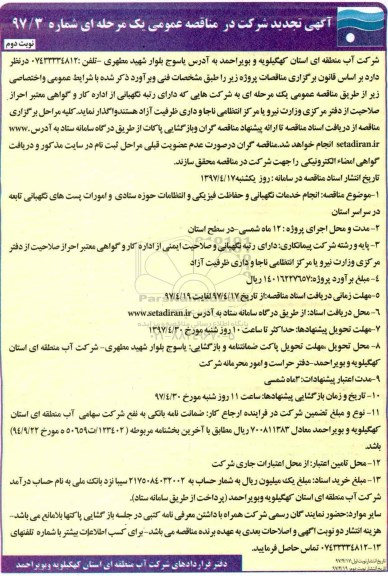 آگهی تجدید شرکت در مناقصه عمومی یک مرحله ای شماره ۹۷/۳
نوبت دوم
شرکت آب منطقه ای استان کهگیلویه و بویراحمد به آدرس یاسوج بلوار شهید مطهری -تلفن: ۰۷۴۳۳۳۴۸۱۲ درنظر
دارد بر اساس قانون برگزاری مناقصات پروژه زیر را طبق مشخصات فنی وبرآورد ذکر شده با شرایط عمومی واختصاصی
زیر از طریق مناقصه عمومی یک مرحله ای به شرکت هایی که دارای رتبه نگهبانی از اداره کار و گواهی معتبر احراز
صلاحیت از دفتر مرکزی وزارت نیرو یا مرکز انتظامی ناجا و دارای ظرفیت آزاد هستندواگذار نماید.کلیه مراحل برگزاری
مناقصه از دریافت اسناد مناقصه تا ارائه پیشنهاد مناقصه گران وبازگشایی پاکات از طریق درگاه سامانه ستاد به آدرس www.
setadiran.ir انجام خواهد شد.مناقصه گران درصورت عدم عضویت قبلی مراحل ثبت نام در سایت مذکور و دریافت
گواهی امضاء الکترونیکی را جهت شرکت در مناقصه محقق سازند.
تاریخ انتشار اسناد مناقصه در سامانه : روز یکشنبه ۱۳۹۷/۴/۱۷
۱-موضوع مناقصه: انجام خدمات نگهبانی و حفاظت فیزیکی و انتظامات حوزه ستادی و امورات پست های نگهبانی تابعه
در سراسر استان
۲- مدت و محل اجرای پروژه : ۱۲ ماه شمسی -در سطح استان
۳- پایه و رشته شرکت پیمانکاری: دارای رتبه نگهبانی و صلاحیت ایمنی از اداره کار و گواهی معتبر احراز صلاحیت از دفتر
مرکزی وزارت نیرو یا مرکز انتظامی ناجا و داری ظرفیت آزاد
۴- مبلغ برآورد پروژه: ۱۴۰۱۶۲۲۷۶۵۷ ریال
۵-مهلت زمانی دریافت اسناد مناقصه:از تاریخ ۹۷/۴/۱۷ لغایت ۹۷/۴/۱۹
۶- محل دریافت اسناد: از طریق درگاه سامانه ستاد به آدرس www.setadiran.ir
۷-مهلت تحویل پیشنهادها: حداکثر تا ساعت ۱۰ روز شنبه مورخ ۱۳۹۷/۴/۳۰
۸- محل تحویل، مهلت تحویل پاکت ضمانتنامه و بازگشایی: یاسوج بلوار شهید مطهری- شرکت آب منطقه ای استان
کهگیلویه و بویراحمد-دفتر حراست و امور محرمانه شرکت
۹-مدت اعتبار پیشنهادات:۳ماه شمسی
۱۰- تاریخ و زمان بازگشایی پیشنهادها: ساعت ۱۱ روز شنبه مورخ ۹۷/۴/۳۰
۱۱- نوع و مبلغ تضمین شرکت در فرایند ارجاع کار: ضمانت نامه بانکی به نفع شرکت سهامی آب منطقه ای استان
کهگیلویه و بویراحمد معادل ۷۰۰۸۱۱۳۸۳ ریال مطابق با آخرین بخشنامه مربوطه (۱۲۳۴۰۲/ت۵۰۶۵۹ ه مورخ ۹۴/۹/۲۲)
باشد.
۱۲- محل تامین اعتبار: از محل اعتبارات جاری شرکت
۱۳-مبلغ خرید اسناد: مبلغ یک میلیون ریال به شمار حساب به ۲۱۷۵۰۸۴۰۳۲۰۰۲ سیبا نزد بانک ملی به نام حساب درآمد
شرکت آب منطقه ای استان کهگیلویه وبویراحمد (پرداخت از طریق سامانه ستاد).
سایر موارد:حضور نمایندگان رسمی شرکت همراه با داشتن معرفی نامه کتبی در جلسه بازگشایی پاکتها بلامانع می باشد-
هزینه انتشار دو نوبت آگهی و اصلاحات بعدی به عهده برنده مناقصه می باشد-برای کسب اطلاعات بیشتر با شماره تلفنهای
۰۷۴۳۳۳۳۴۸۱۲-۱۳ تماس حاصل فرمایید.
دفتر قراردادهای شرکت آب منطقه ای استان کهگیلویه وبویراحمد